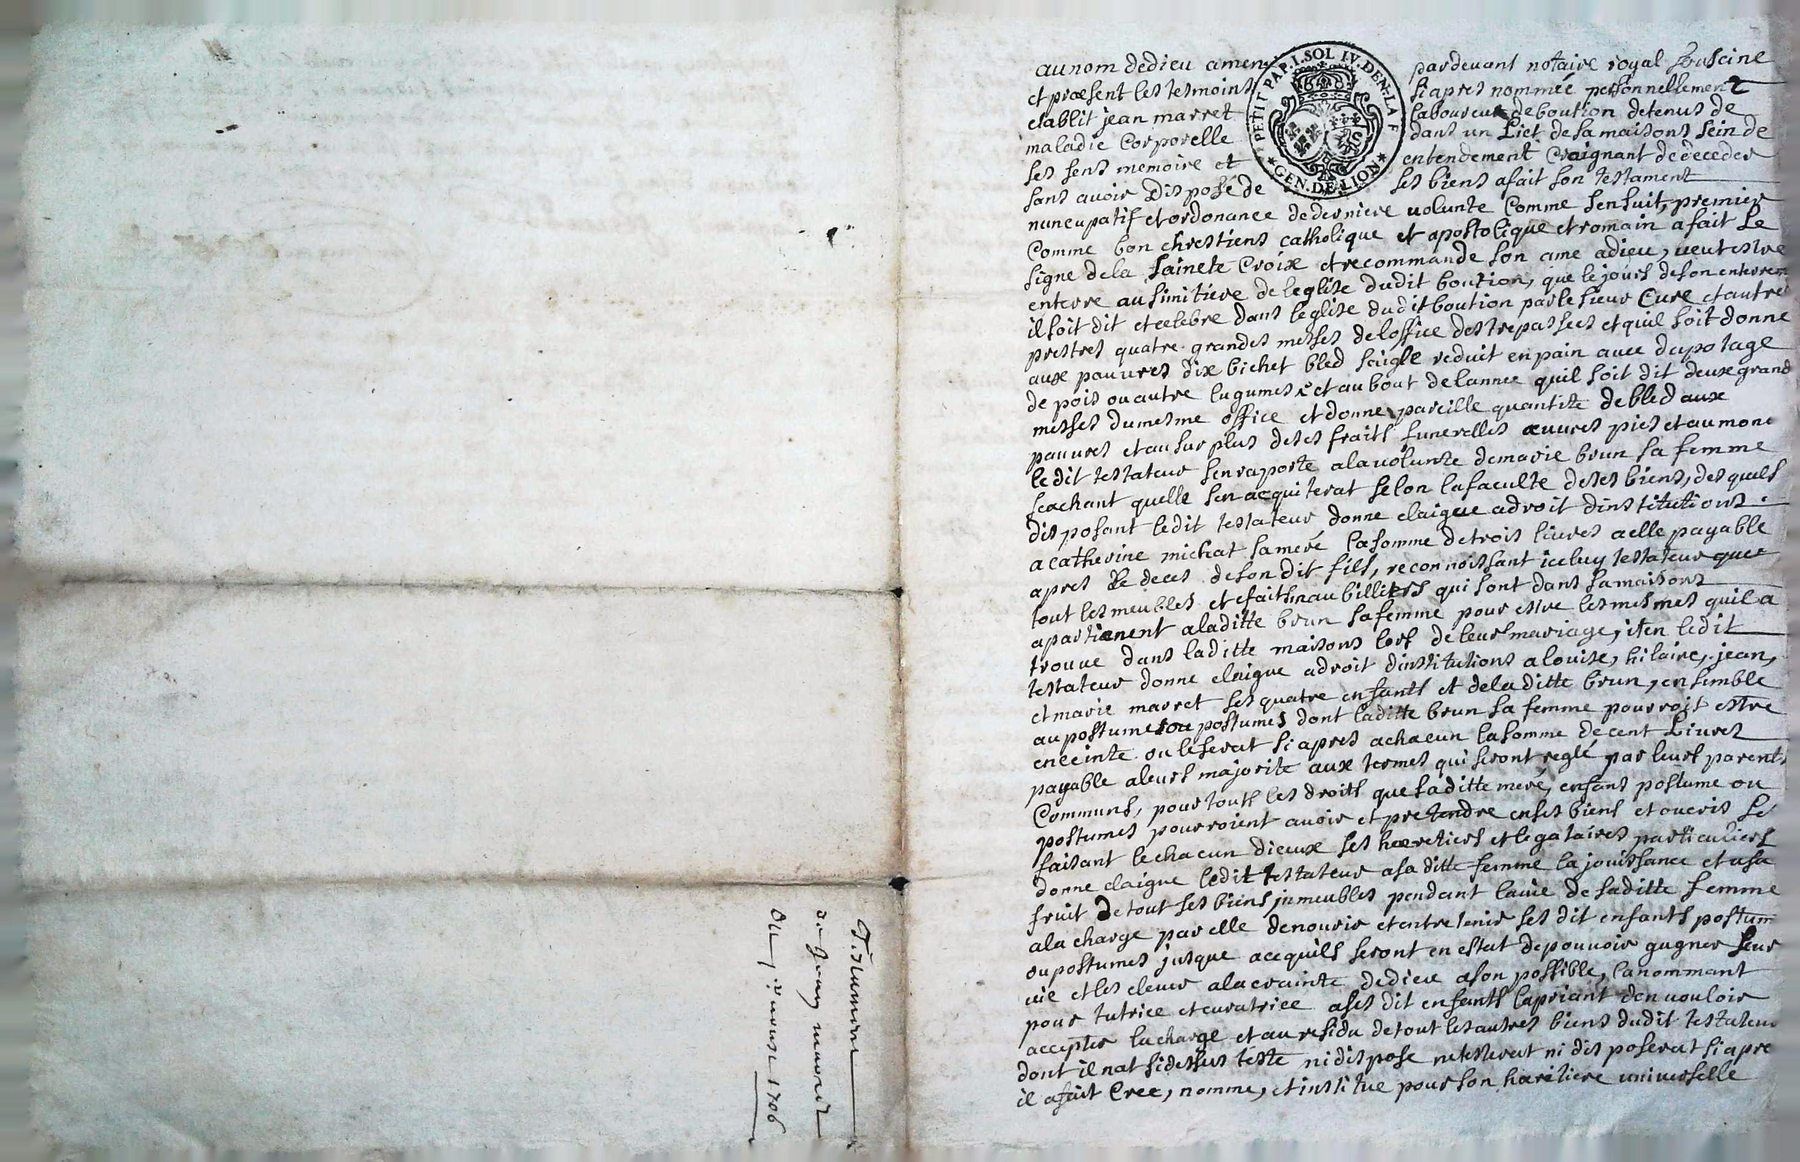 Testament
de Jean marret
du 12 mars 1706
PETIT PAP. I. SOL IV. DEN. LA F
GEN. DE LION
au nom de dieu amen pardevant notaire royal
et præsent les tesmoins si apres nommée personnellement
etablit jean marret laboureur de boution detenus de
maladie corporelle dans un Lict de sa maisons sein de
ses sens memoire et entendement craignant de deceder
sans avoir disposé de ses biens a fait son testament
nuncupatif et ordonance de derniere volunte comme sensuit, premier
comme bon chrestiens catholique et apostolique et romain a fait le
signe de la saincte Croix et recommande son ame a dieu, veut estre
enterre au simitiere de leglise dudit boution, que le jours de son enterrem
il soit dit et celebre dans leglise dudit boution par le sieur Cure et autre
prestres quatre grandes messes de loffice des trepassees et quil soit donne
aux pauvres dix bichet bled seigle reduit en pain avec du potage
de pois ou autre lugumes et au bout de lannee quil soit dit deux grand
messes du mesme office et donne pareille quantite de bled aux
pauvres et au surplus de ses fraits funerelles œuvres pies et aumone
le dit testateur sen raporte a la volunte de marie brun sa femme
scachant quelle sen acquiterat selon la faculte de ses biens, des quels
disposant ledit testateur donne elaigue a droit dinstitutions
a catherine michat sa meré la somme de trois livres a elle payable
apres le deces de son dit fils, reconnoissant iceluy testateur que
tout les meubles et efaits nau billiers qui sont dans sa maisons
apartienent a laditte brun sa femme pour estre les mesmes quil a
trouve dans laditte maisons lors de leurs mariage, iten ledit
testateur donne elaigue a droit dinstitutions a louise, hilaire, jean,
et marie marret ses quatre enfants et de la ditte brun, ensemble
au postume ou postumes dont laditte brun sa femme pourroit estre
enceinte ou leserat si apres a chacun la somme de cent Livres
payable a leurs majorite aux termes qui seront reglé par leurs parents
Communs, pour touts les droits que saditte meré, enfans postume ou
postumes pourroient avoir et pretendre en ses biens et overis le
faisant le chacun dieux ses hæretiers et legataires particuliers
donne elaigue ledit testateur a sa ditte femme la jouissance et usa
fruit de tout ses biens jnmeubles pendant la vie de saditte femme
a la charge par elle de nourir et entretenir ses dit enfants postum
ou postumes jusque a ce quils seront en estat de pouvoir gagner leur
vie et les elever a la crainte de dieu a son possible, la nommant
pour tutrice et curatrice a ses dit enfants la priant den vouloir
accepter la charge et au residu de tout les autres biens dudit testateur
dont il nat si dessus testé ni dispose ne testerat ni disposerat si apre
il a fait Cree, nomme, et institue pour son hæritiere universelle